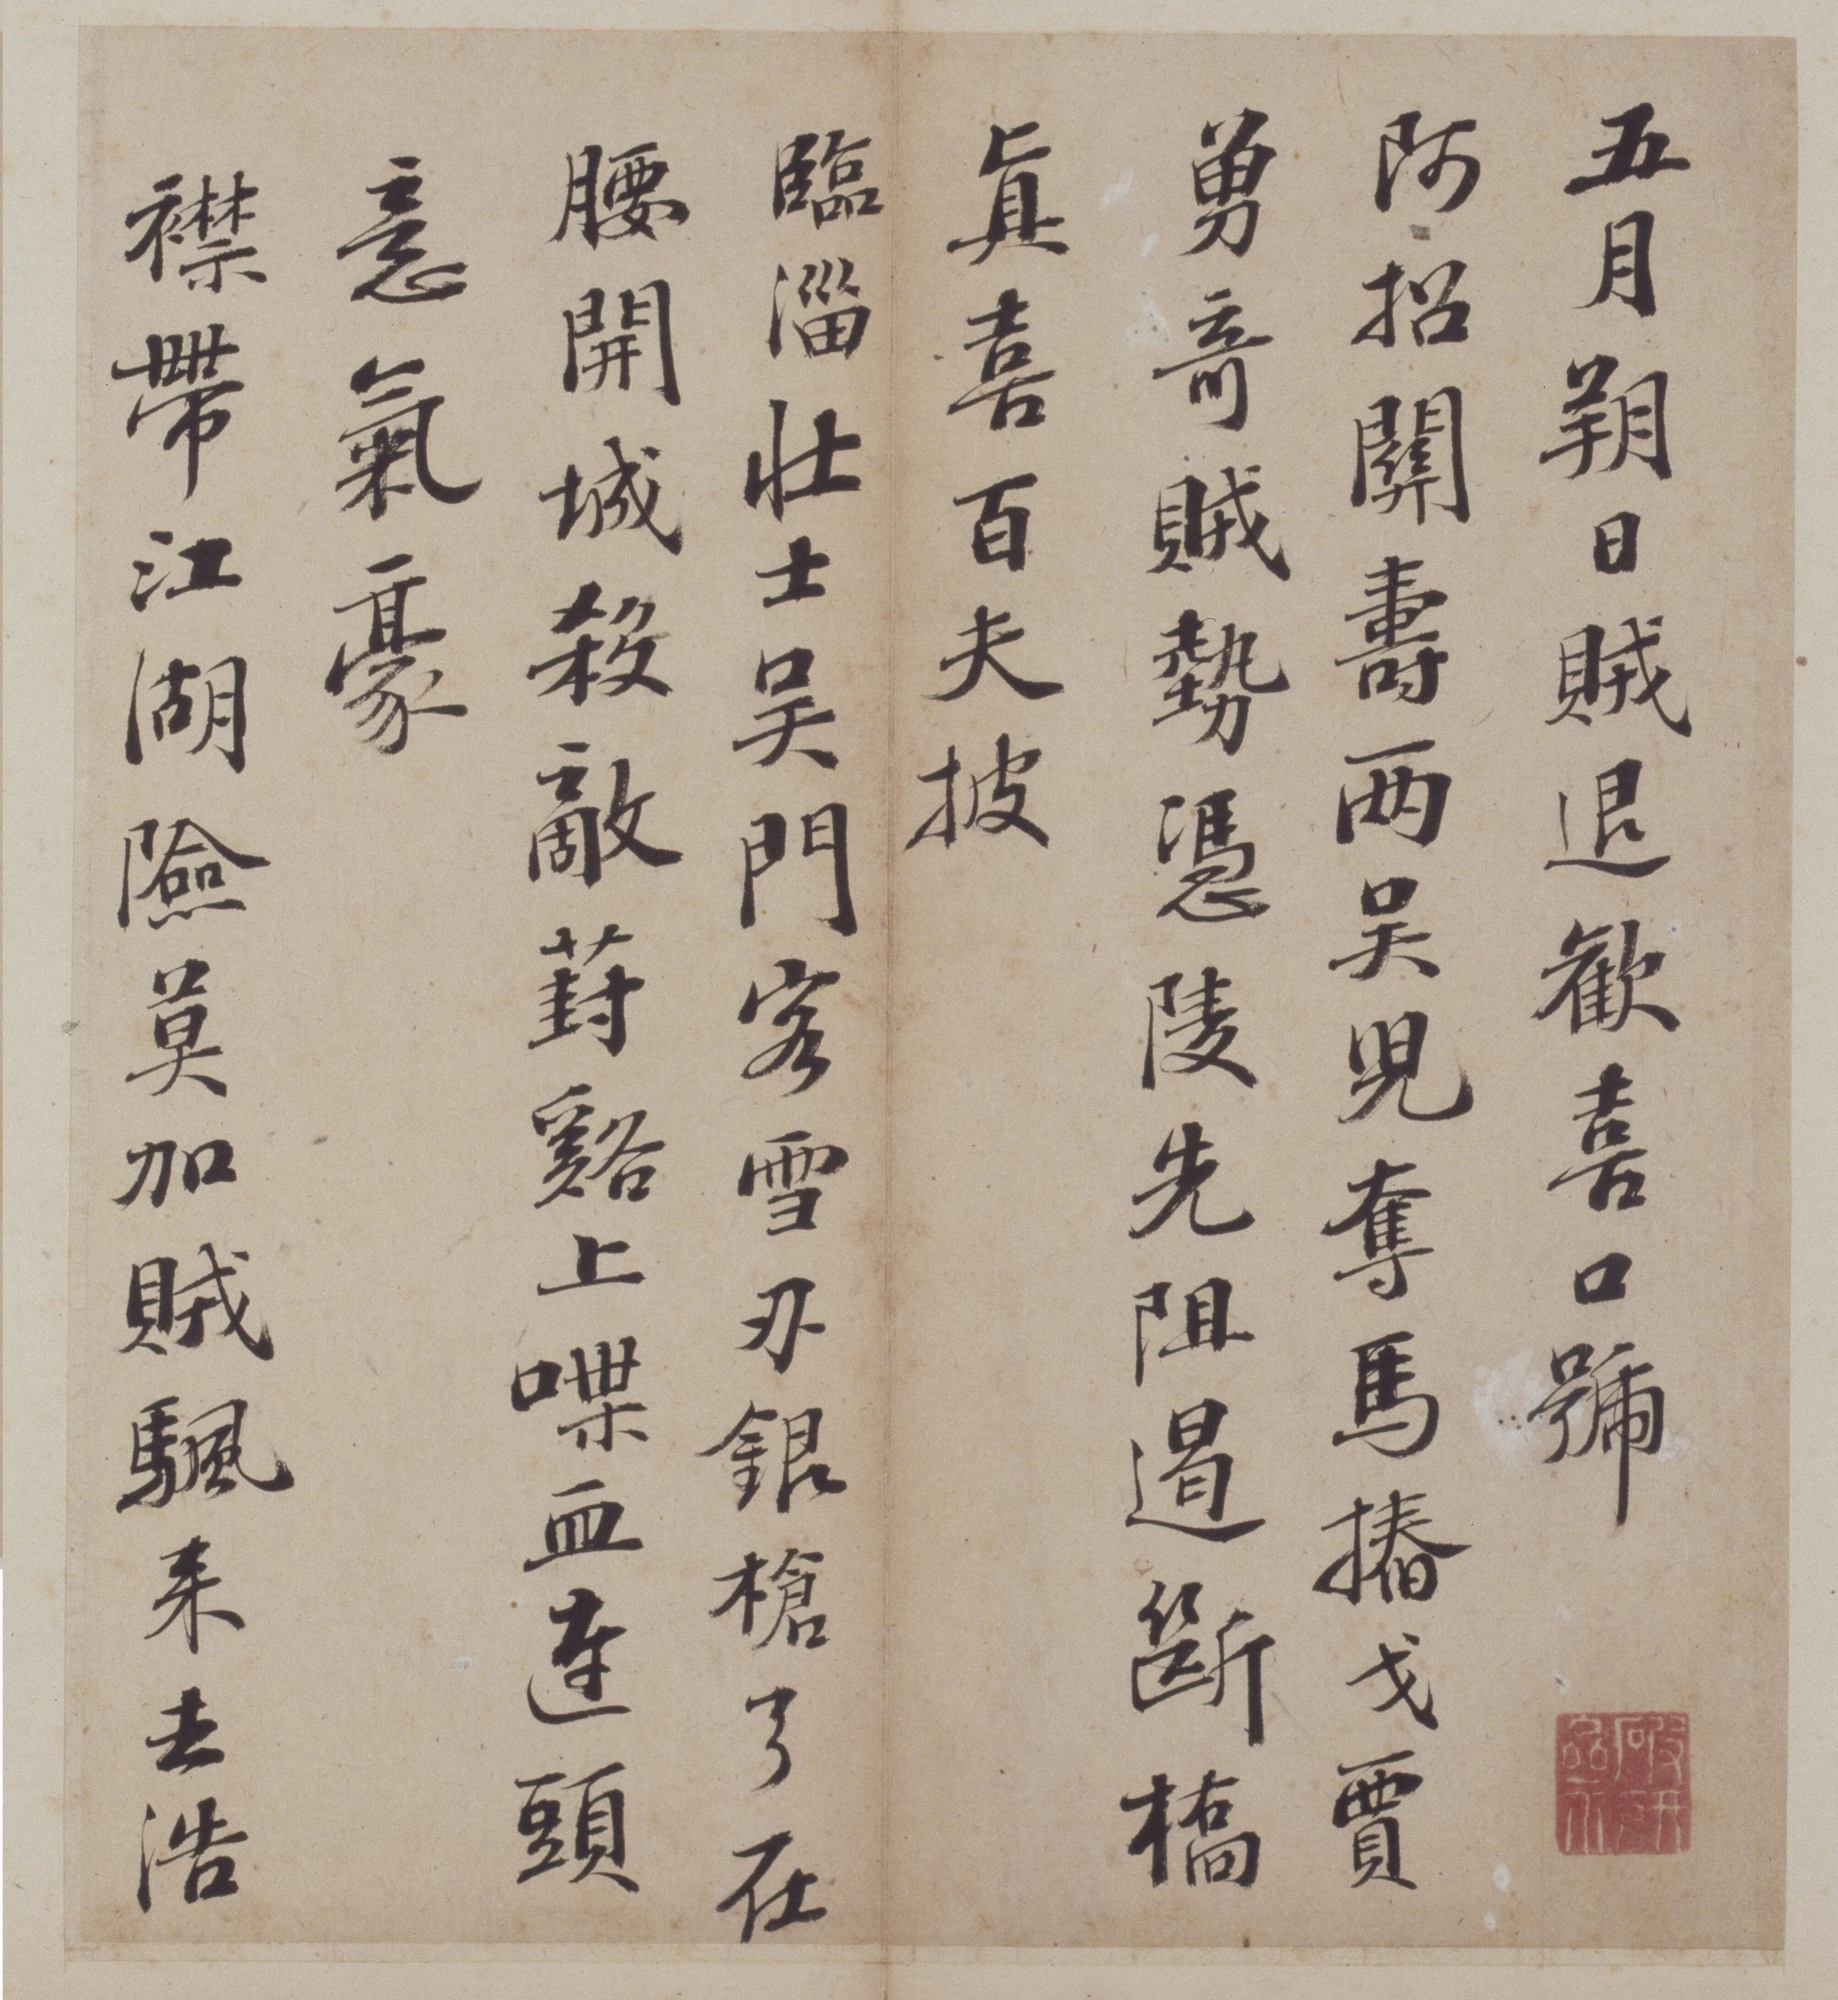 五月朔日賊退歡喜口號
阿招關壽両吴児奪馬摏戈賈
勇奇賊勢憑陵先阻遏斷橋
眞喜百夫披
臨淄壯士吴門客雪刃銀槍弓在
腰開城殺敵葑谿上喋血連頭
意氣豪
襟帶江湖險莫加賊颿来去浩